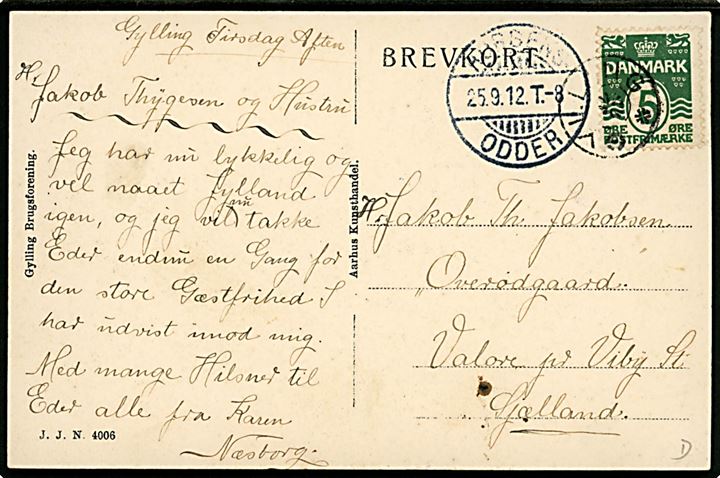 Gylling Tirsdag Aften
Hr. Jakob Thygesen og Hustru
Jeg har nu lykkelig og
vel naaet Jylland
igen, og jeg vil nu takke
Eder endnu en Gang for
den store Gæstfrihed I
har udvist imod mig.
Med mange Hilsner til
Eder alle fra Karen
Næsborg.
Gylling Brugsforening.
J. J. N. 4006
Aarhus Kunsthandel.
BREVKORT.
HORSENS
25.9.12.T.-8
ODDER
DANMARK
5
ØRE ØRE
POSTFRIMÆRKE
Hr. Jakob Th. Jakobsen
"Overødgaard.
Valore pr Viby St.
Sjælland.
D